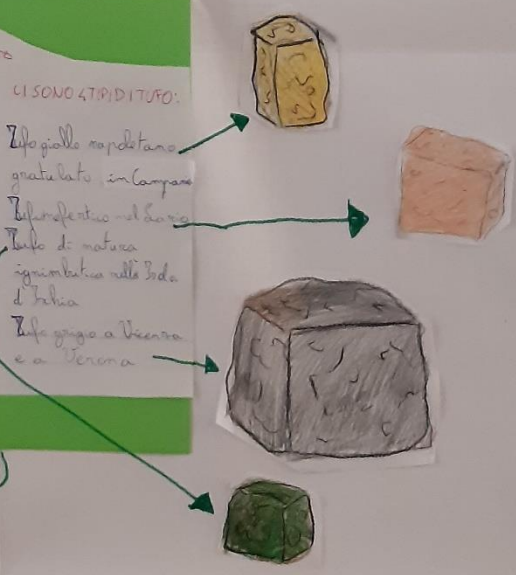 CI SONO 4 TIPI DI TUFO:
Tufo giallo napoletano
in Campania
Tufo nel Lazio
Tufo di natura
ignimbritica nella Isola
d'Ischia
Tufo grigio a Vicenza
e a Verona